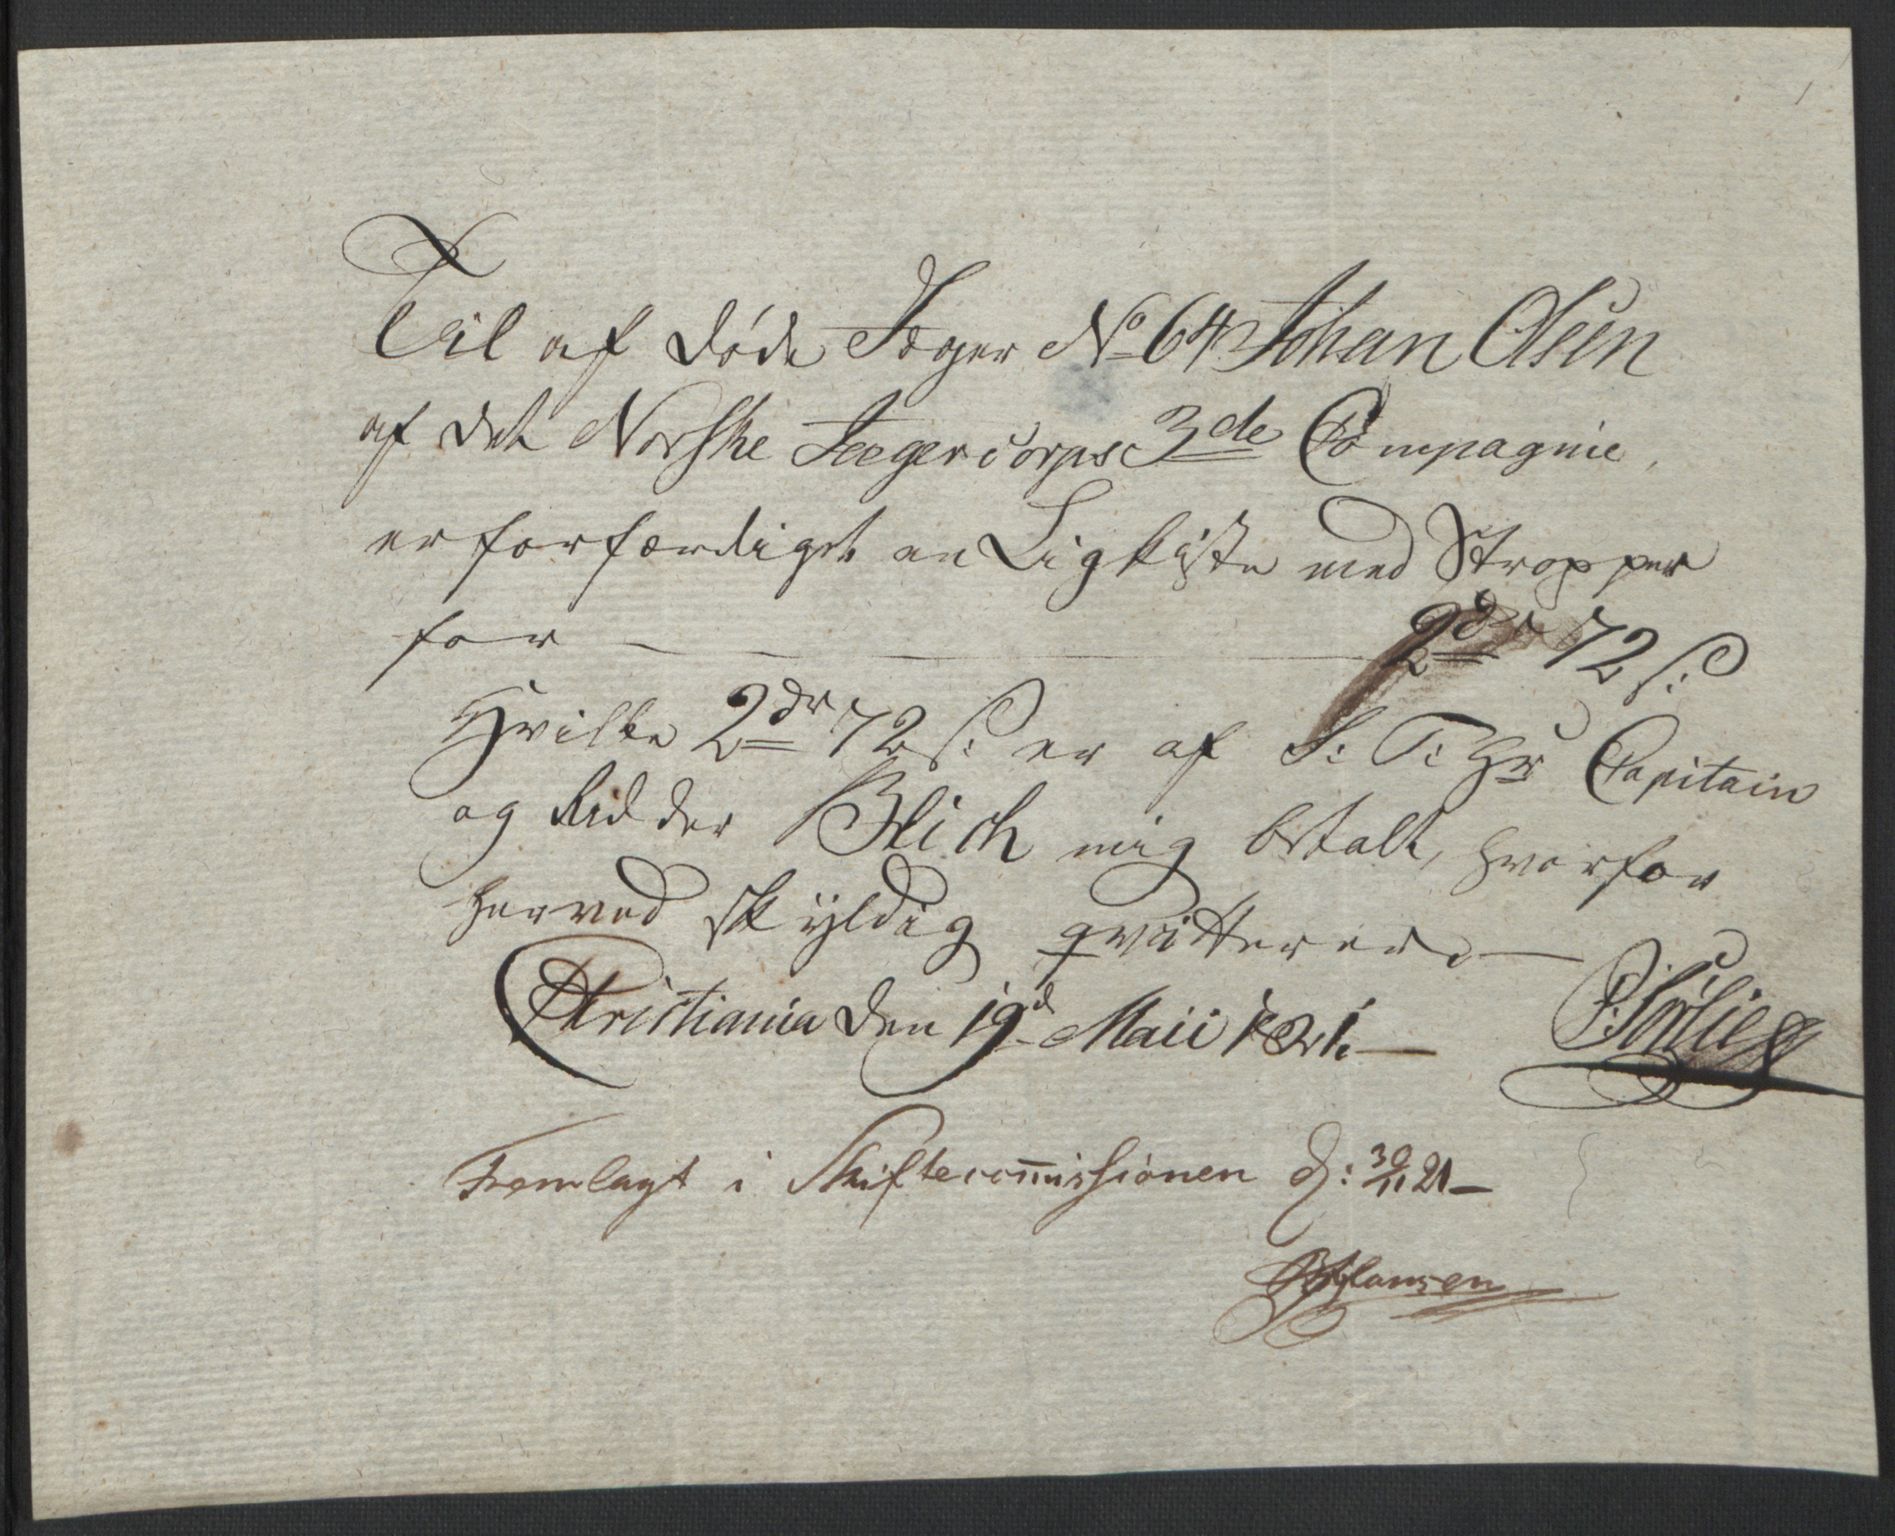 Til afdøde Jæger No 64 Johan Olsen
af det Norske Jægercorps 3de Compagnie,
er forfærdiget en Ligkiste med Stropper
for — — — — — 2dr 72 s:
Hvilke 2dr 72 s: er af S: T: Hr Capitain
og Ridder Blich mig betalt, hvorfor
herved skÿldig qvitterer. —
Christiania den 19d Maii 1821. — P: Sørlie
Fremlagt i Skiftecom̄issionen d: 30/11 21 —
Hansen